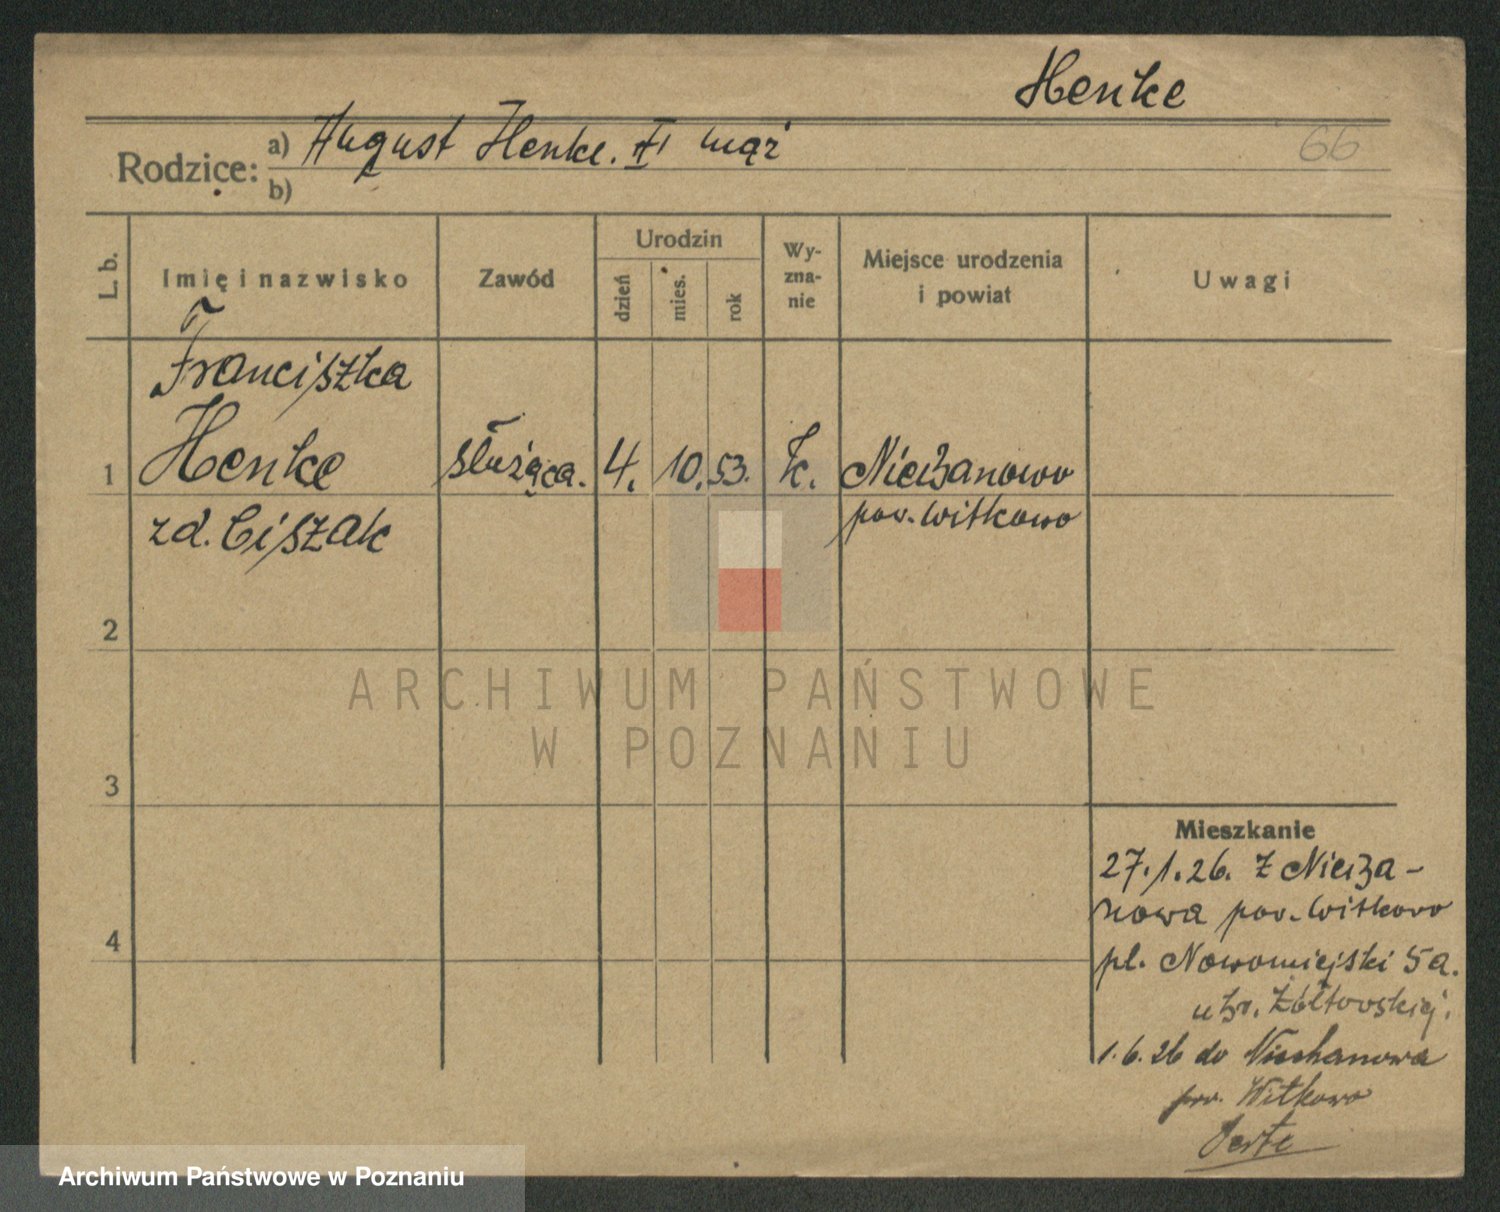 Henke
66
Rodzice: a) August Henke. II mąż
b)
L. b.
Imię i nazwisko
Zawód
Urodzin
dzień
mies.
rok
Wy-
zna-
nie
Miejsce urodzenia
i powiat
Uwagi
Franciszka
1 Henke służąca. 4. 10. 53. k. Niechanowo
zd. Ciszak pow. Witkowo
2
3
4
Mieszkanie
27.1.26. z Niecha-
nowa pow. Witkowo
pl. Nowomiejski 5a.
u hr. Żółtowskiej.
1.6.26 do Niechanowa
pow. Witkowo
ARCHIWUM PAŃSTWOWE
W POZNANIU
Archiwum Państwowe w Poznaniu